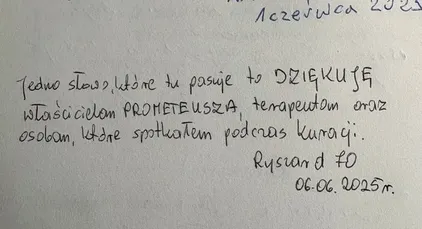 1 czerwca 2025
Jedno słowo, które tu pasuje to DZIĘKUJĘ
właścicielom PROMETEUSZA, terapeutom oraz
osobom, które spotkałem podczas kuracji.
Ryszard ŻO
06.06.2025r.